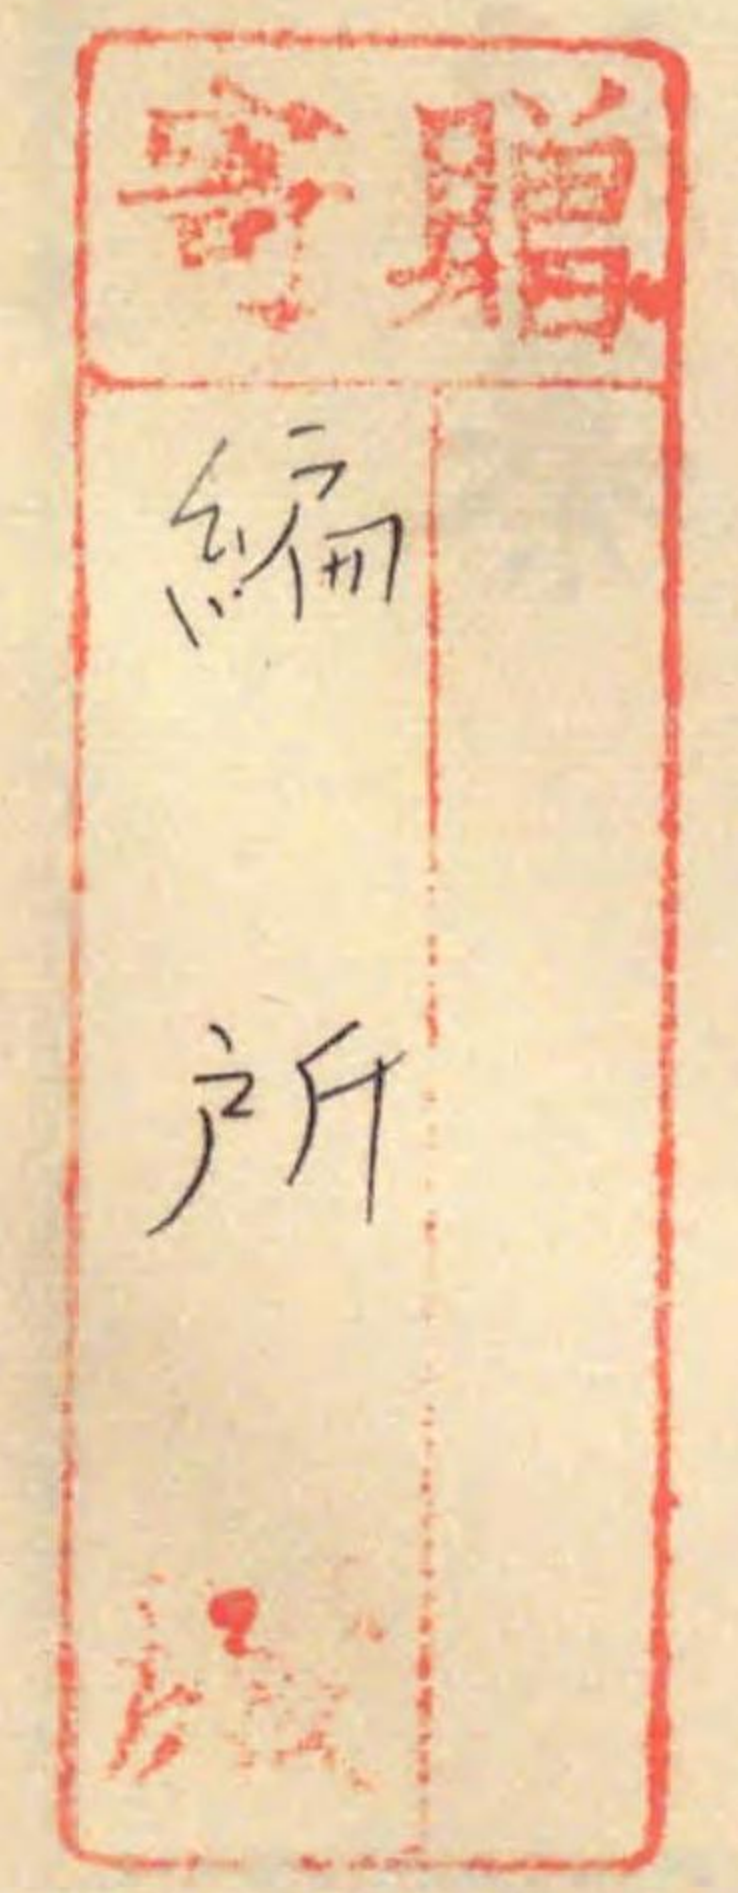 寄贈
編所
殿